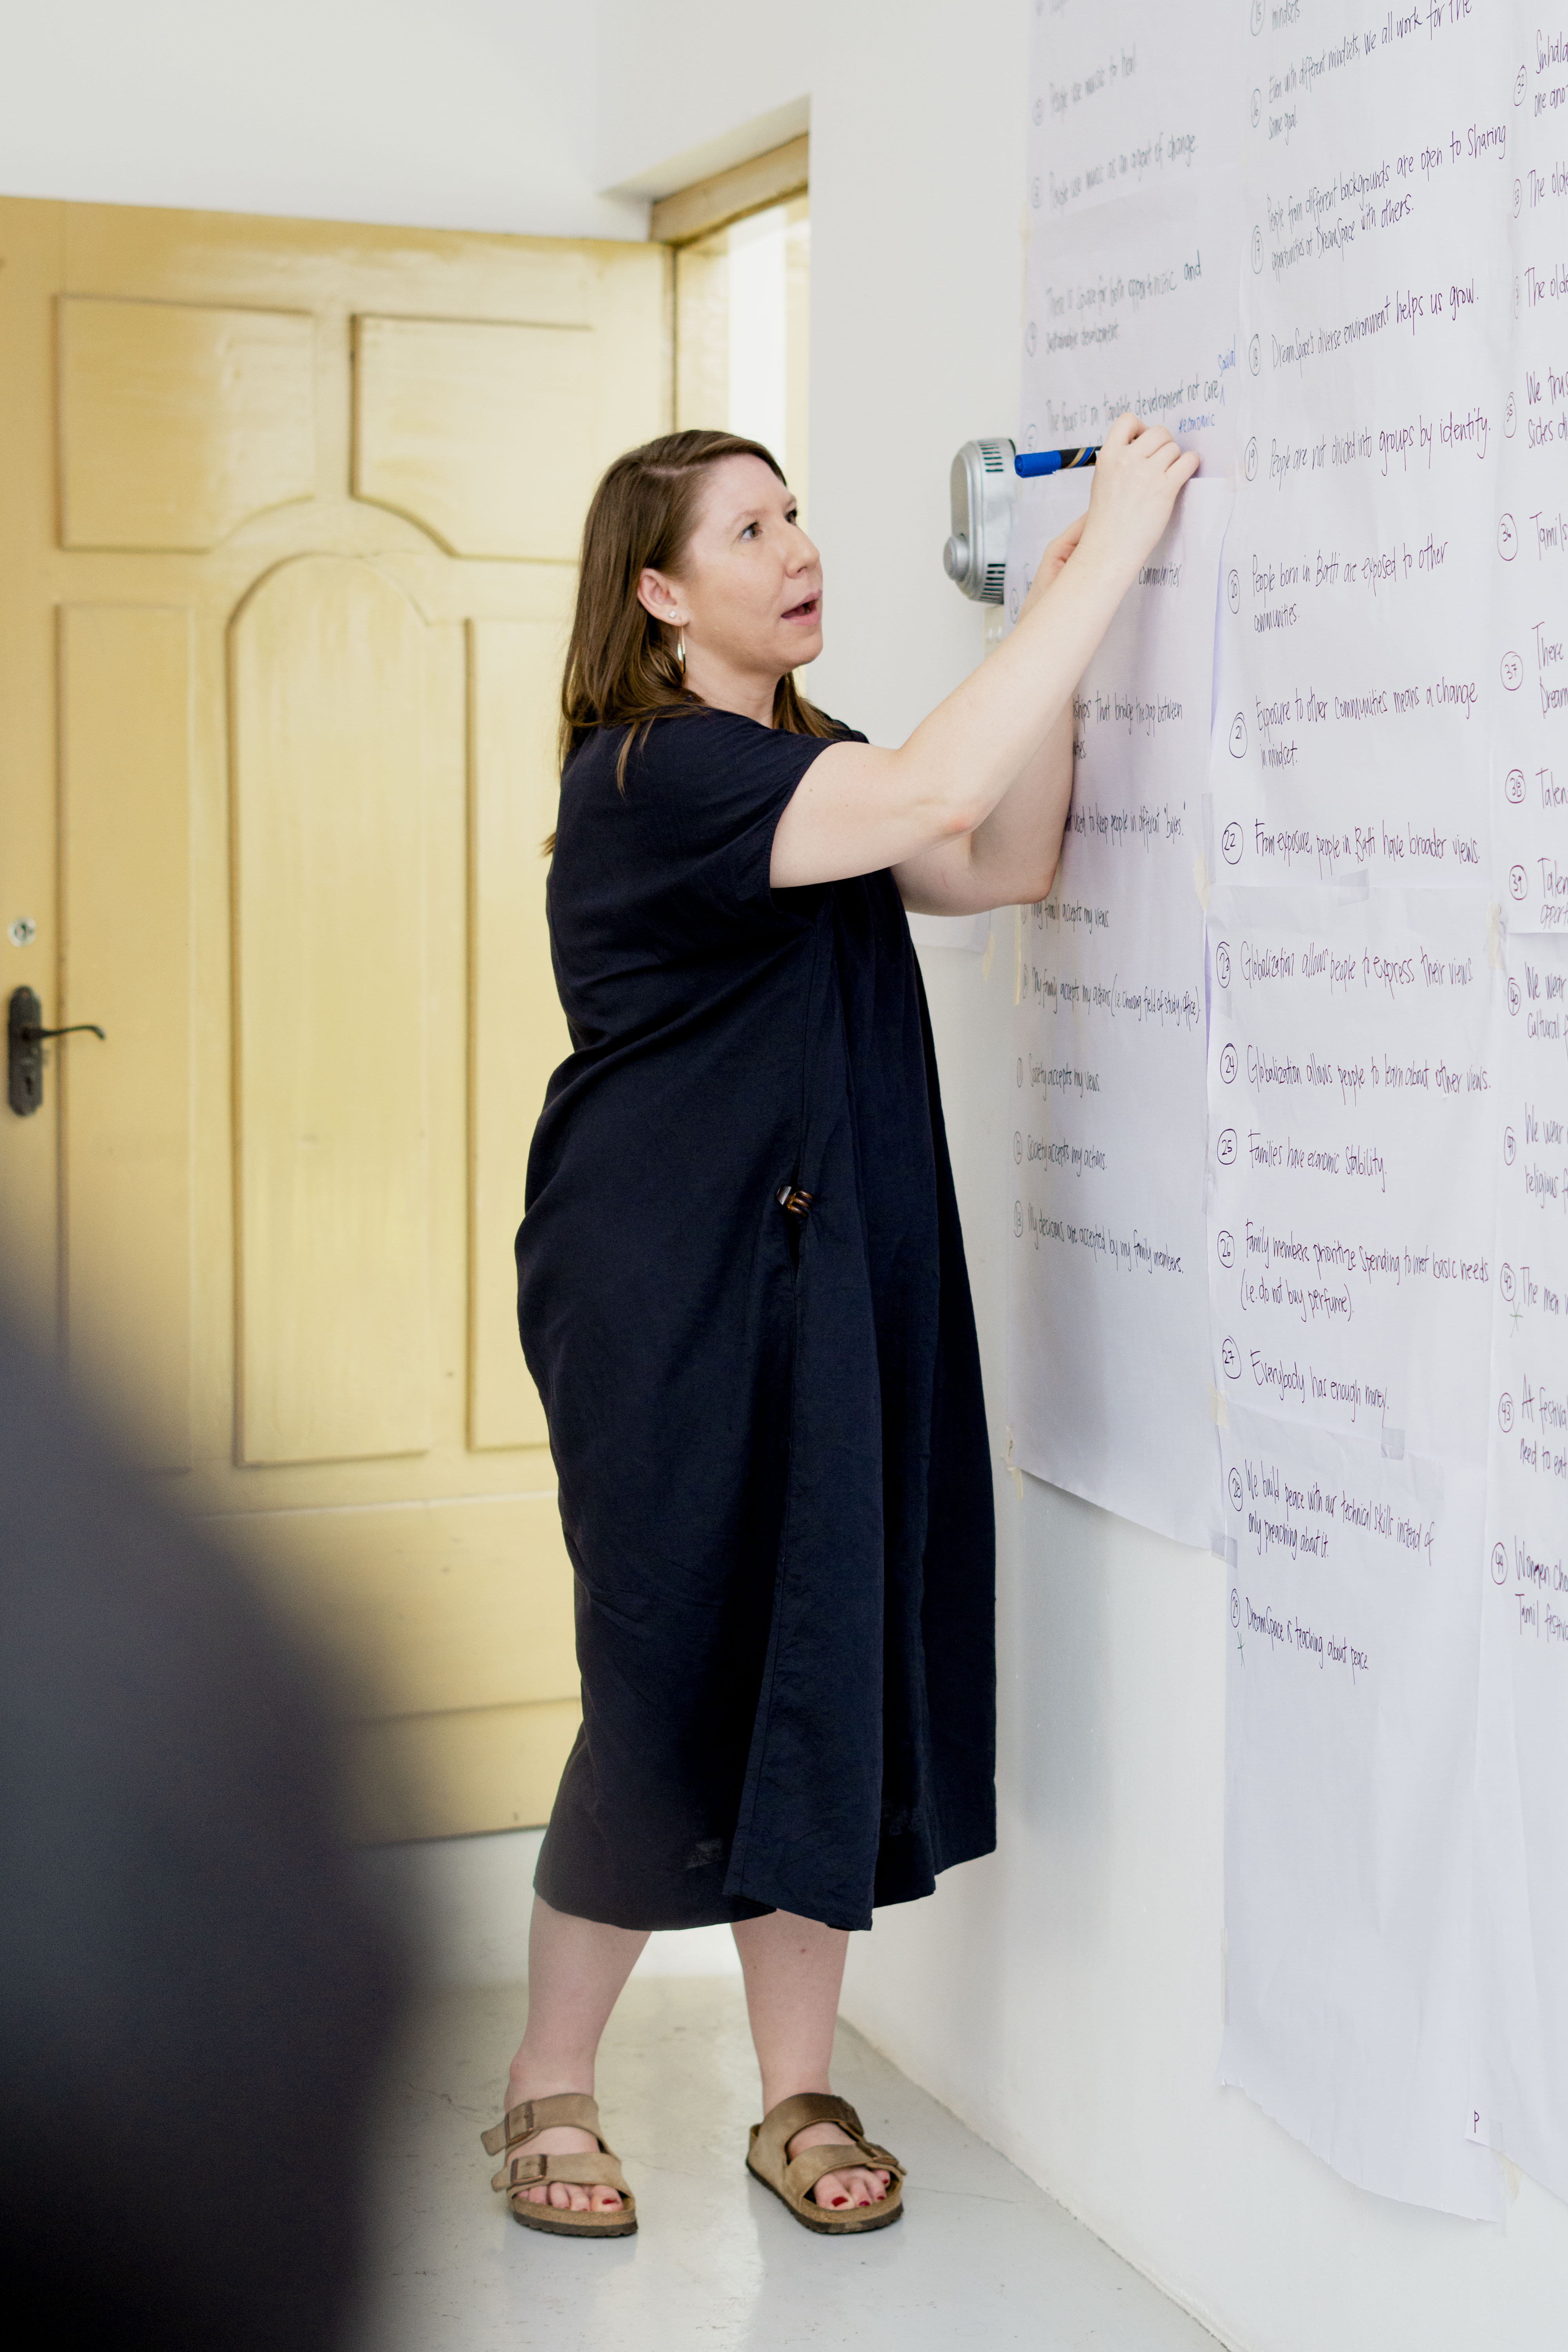 People use music to heal
People use music as an agent of change
There is space for both opportunistic and
sustainable development.
Social
The focus is on tangible development not care
+economic
communities
ships that bridge the gap between
used to keep people in different "boxes".
My family accepts my views.
My family accepts my actions (i.e. choosing field of study, office)
Society accepts my views.
12 Society accepts my actions.
13 My decisions are accepted by my family members.
15
mindsets.
16 Even with different mindsets, we all work for the
same goal.
17 People from different backgrounds are open to sharing
opportunities at DreamSpace with others.
18 DreamSpace's diverse environment helps us grow.
19 People are not divided into groups by identity.
20 People born in Batti are exposed to other
communities.
21 Exposure to other communities means a change
in mindset.
22 From exposure, people in Batti have broader views.
23 Globalization allows people to express their views.
24 Globalization allows people to learn about other views.
25 Families have economic stability.
26 Family members prioritize spending to meet basic needs
(i.e. do not buy perfume).
27 Everybody has enough money.
28 We build peace with our technical skills instead of
only preaching about it.
29 DreamSpace is teaching about peace.
one ano
The olde
The olde
We trus
36 Tamils
37 There
Dream
38 Talen
39 Talen
opport
40 We wear
cultural f
We wear
religious f
The men
43 At festival
need to eat
44 Women cho
Tamil festiv
P
P